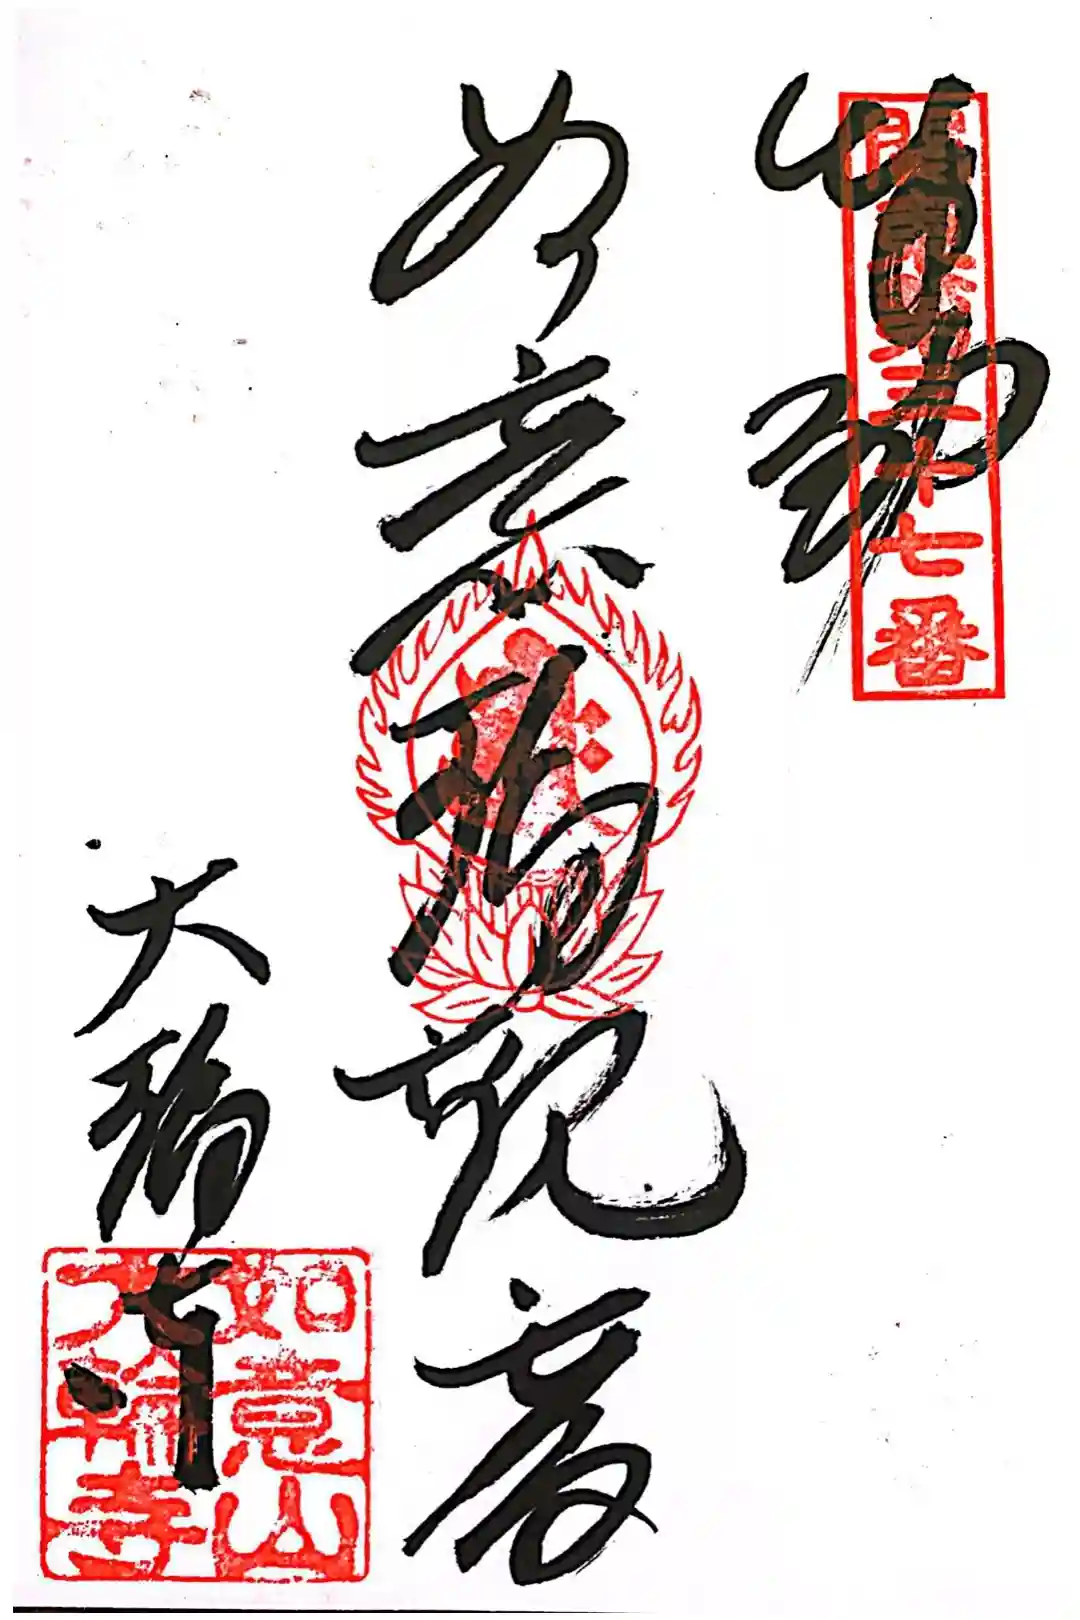 三十七番
如意輪観音
大輪寺
如意山
大輪寺